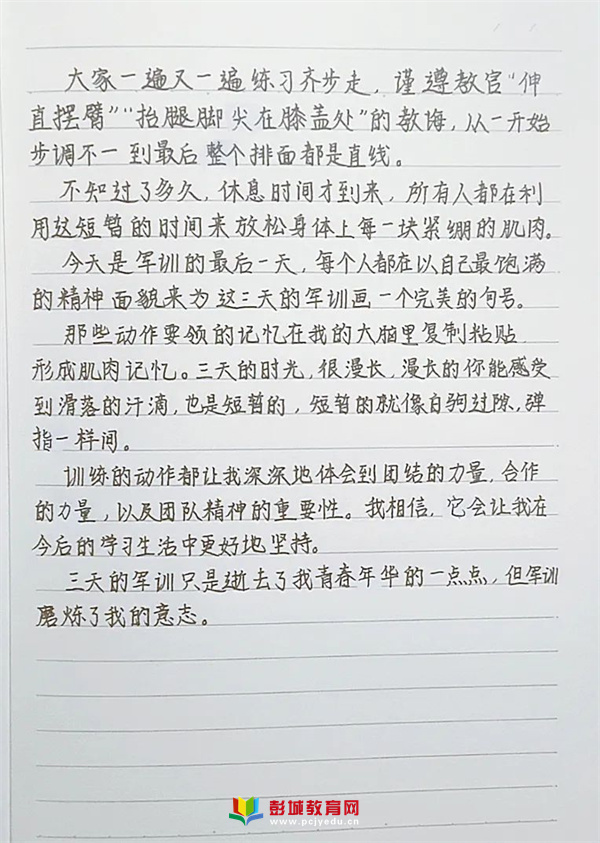 大家一遍又一遍练习齐步走，谨遵教官“伸
直摆臂”“抬腿脚尖在膝盖处”的教诲，从一开始
步调不一到最后整个排面都是直线。
不知过了多久，休息时间才到来，所有人都在利
用这短暂的时间来放松身体上每一块紧绷的肌肉。
今天是军训的最后一天，每个人都在以自己最饱满
的精神面貌来为这三天的军训画一个完美的句号。
那些动作要领的记忆在我的大脑里复制粘贴
形成肌肉记忆。三天的时光，很漫长，漫长的你能感受
到滑落的汗滴，也是短暂的，短暂的就像白驹过隙，弹
指一样间。
训练的动作都让我深深地体会到团结的力量，合作
的力量，以及团队精神的重要性。我相信，它会让我在
今后的学习生活中更好地坚持。
三天的军训只是逝去了我青春年华的一点点，但军训
磨炼了我的意志。
彭城教育网
www.pcjyedu.cn